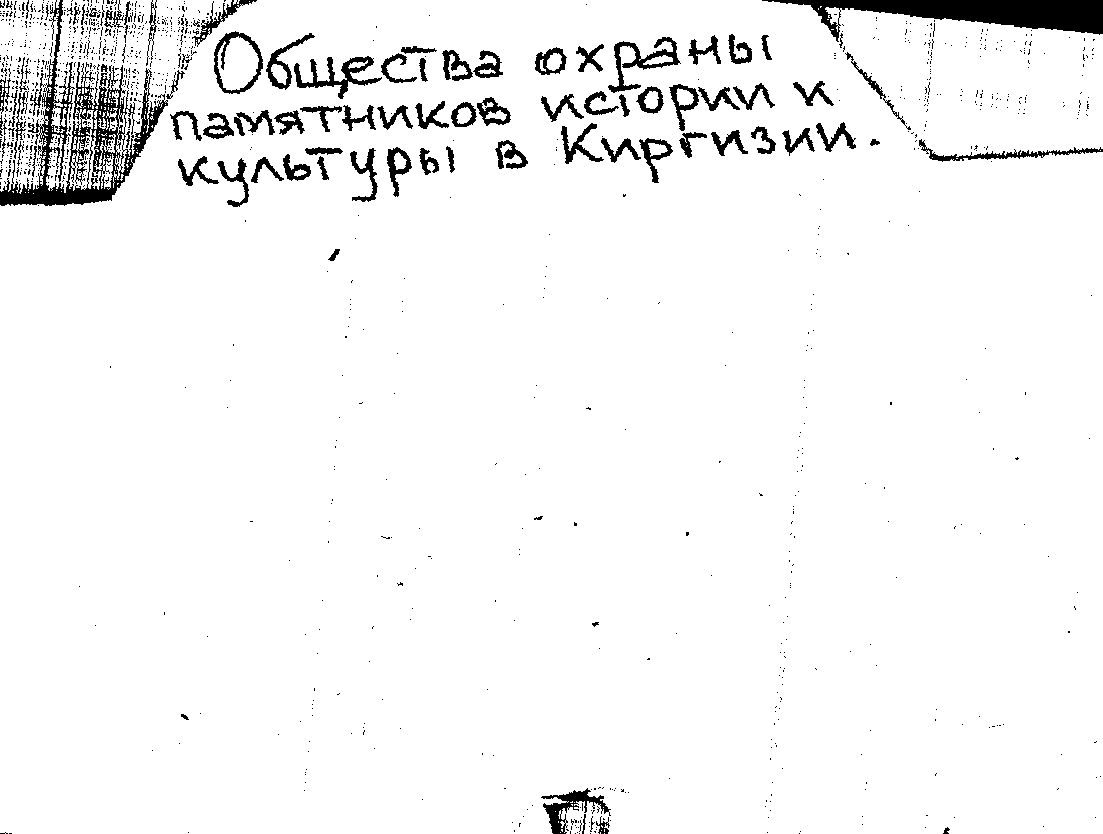 Общества охраны
памятников истории и
культуры в Киргизии.